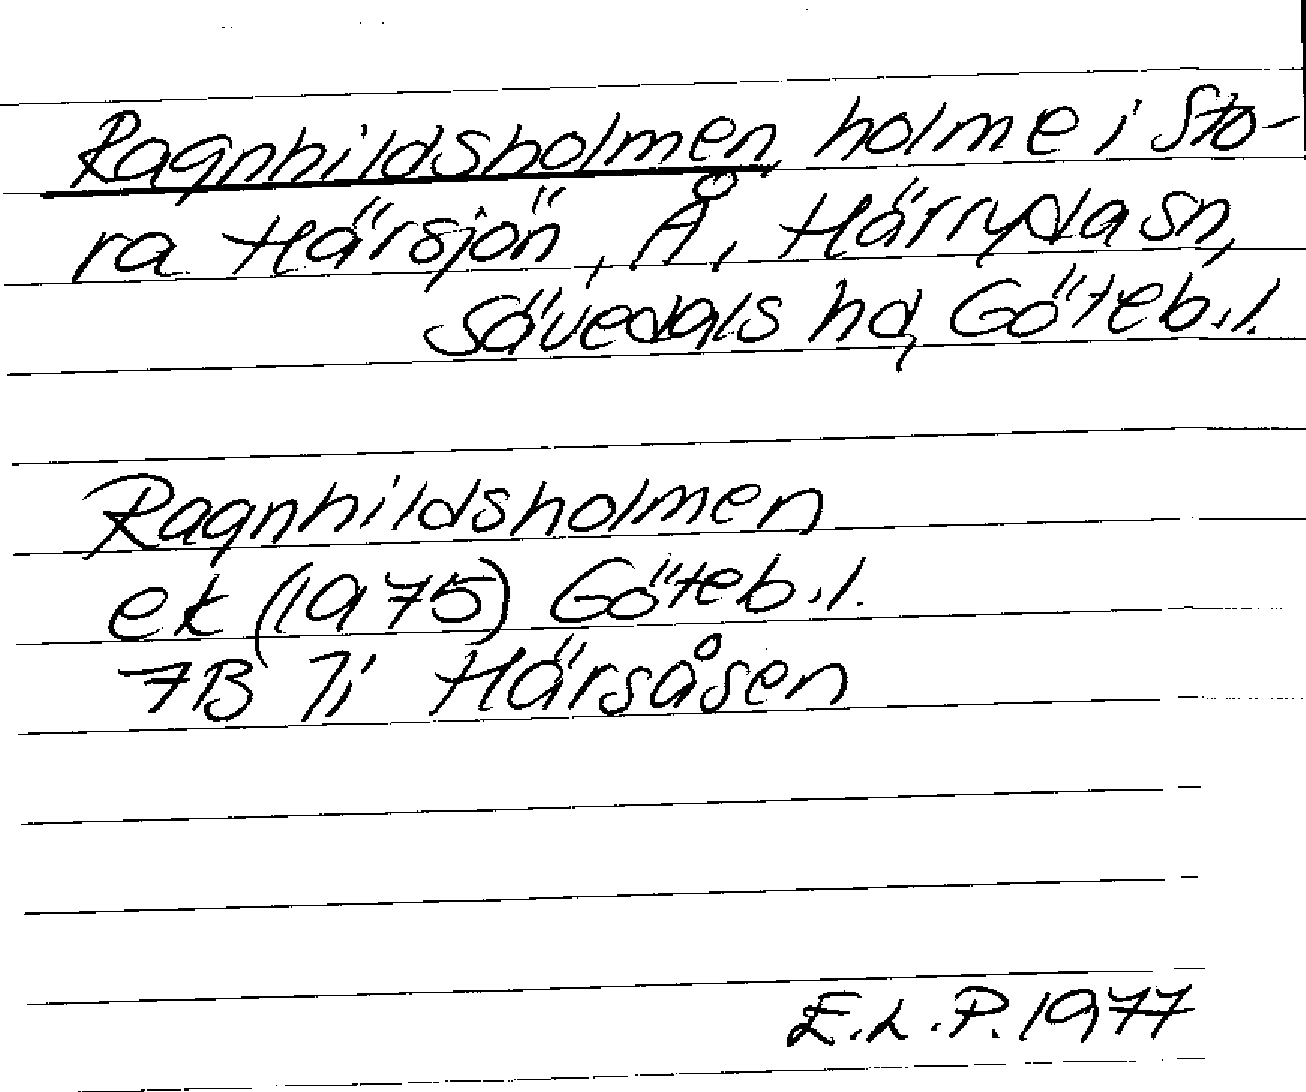 Ragnhildsholmen, holme i Sto-
ra Härsjön, Å, Härryda sn,
Sävedals hd, Göteb.l.
Ragnhildsholmen
ek (1975) Göteb.l.
7B 7i Härsåsen
E.L.P. 1977